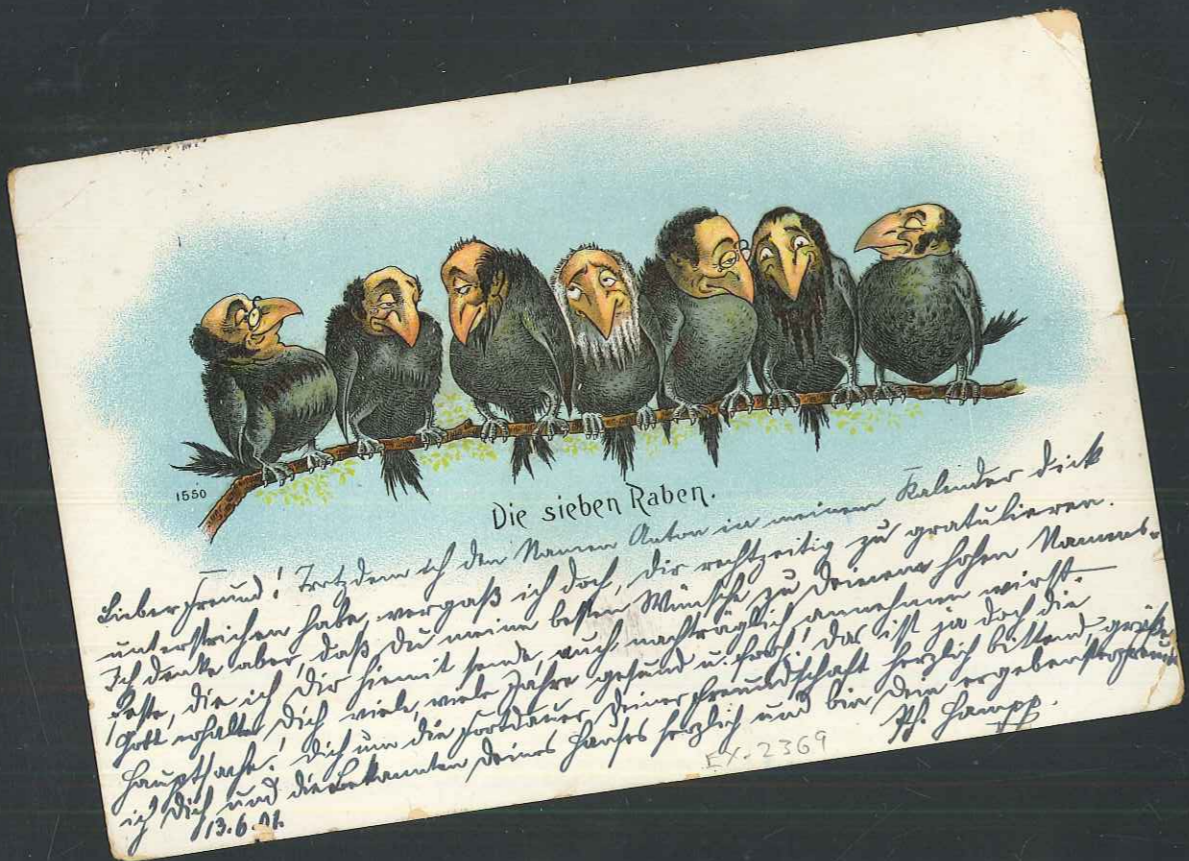 1550
Die sieben Raben.
Lieber Freund! Trotzdem ich den Namen Anton in meinem Kalender dick
unterstrichen habe, vergaß ich doch, dir rechtzeitig zu gratulieren.
Ich denke aber, daß Du meine besten Wünsche zu Deinem hohen Namens-
feste, die ich Dir hiemit sende, auch nachträglich annehmen wirst.
Gott erhalte Dich viele, viele Jahre gesund u. froh! Das ist ja doch die
Hauptsache! Dich um die Fortdauer Deiner Freundschaft herzlich bittend, grüße
ich Dich und die Bekannten Deines Hauses herzlich und bin Dein ergebenster Freund
13.6.01.
Ph. Hampp.
EX-2369